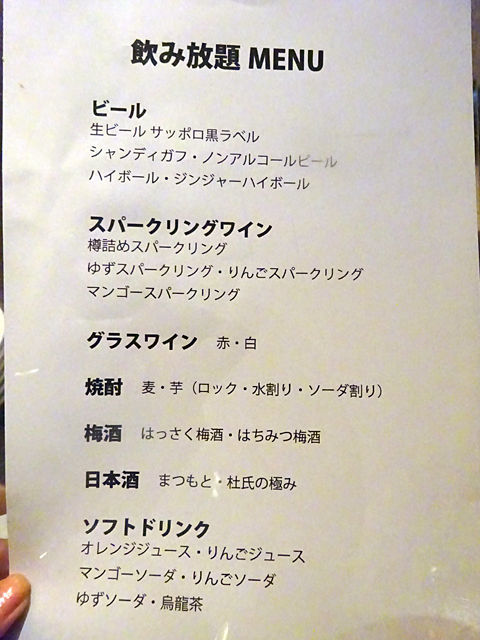 飲み放題 MENU
ビール
生ビール サッポロ黒ラベル
シャンディガフ・ノンアルコールビール
ハイボール・ジンジャーハイボール
スパークリングワイン
樽詰めスパークリング
ゆずスパークリング・りんごスパークリング
マンゴースパークリング
グラスワイン 赤・白
焼酎 麦・芋（ロック・水割り・ソーダ割り）
梅酒 はっさく梅酒・はちみつ梅酒
日本酒 まつもと・杜氏の極み
ソフトドリンク
オレンジジュース・りんごジュース
マンゴーソーダ・りんごソーダ
ゆずソーダ・烏龍茶